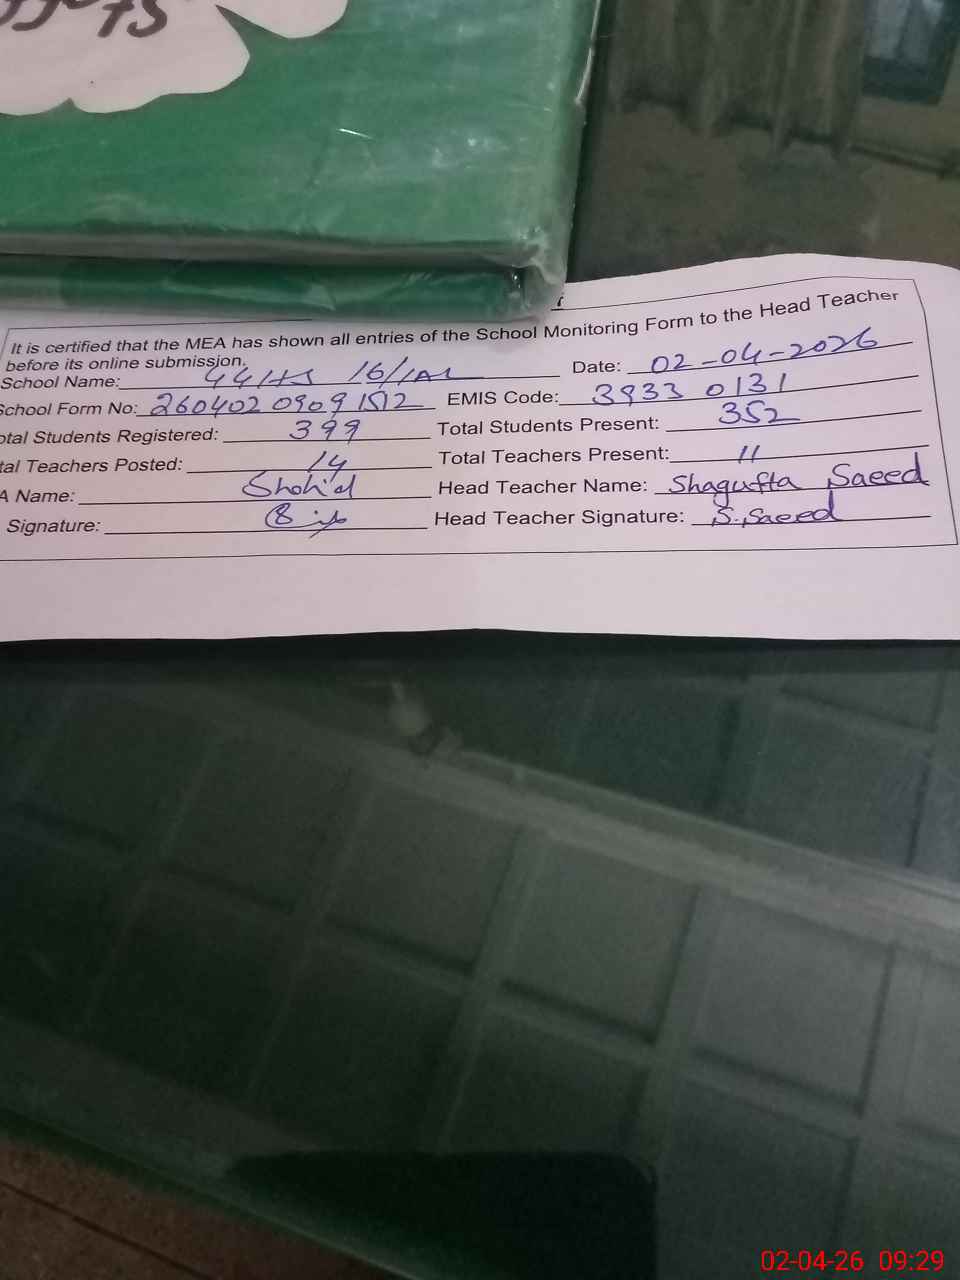 It is certified that the MEA has shown all entries of the School Monitoring Form to the Head Teacher
before its online submission.
School Name: 16/1AL Date: 02-04-2026
School Form No: 260402 0909 1512 EMIS Code: 3933 0131
otal Students Registered: 399 Total Students Present: 352
tal Teachers Posted: 14 Total Teachers Present: 11
A Name: Shahid Head Teacher Name: Shagufta Saeed
Signature: Head Teacher Signature: S.Saeed
02-04-26 09:29